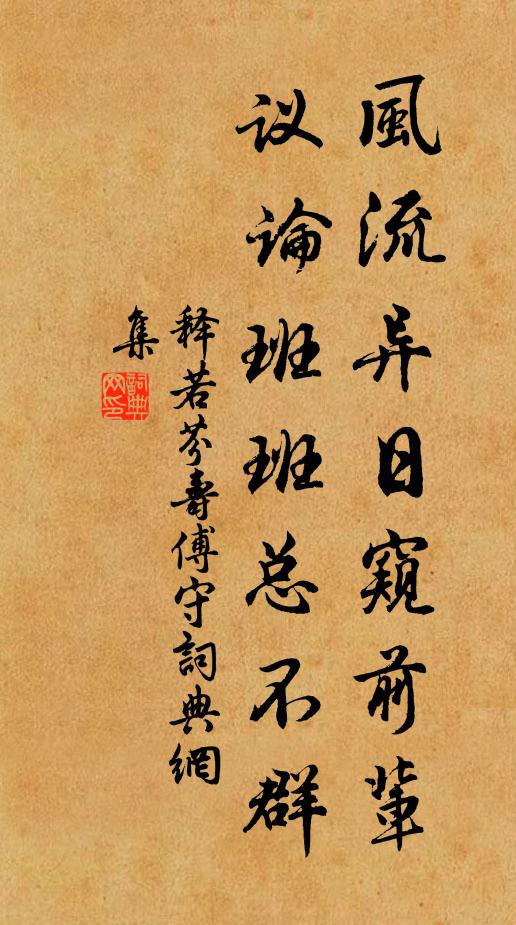 風流异日窺前輩
议論班班总不群
释若芬壽傅守詞典網
集
詞典
网印